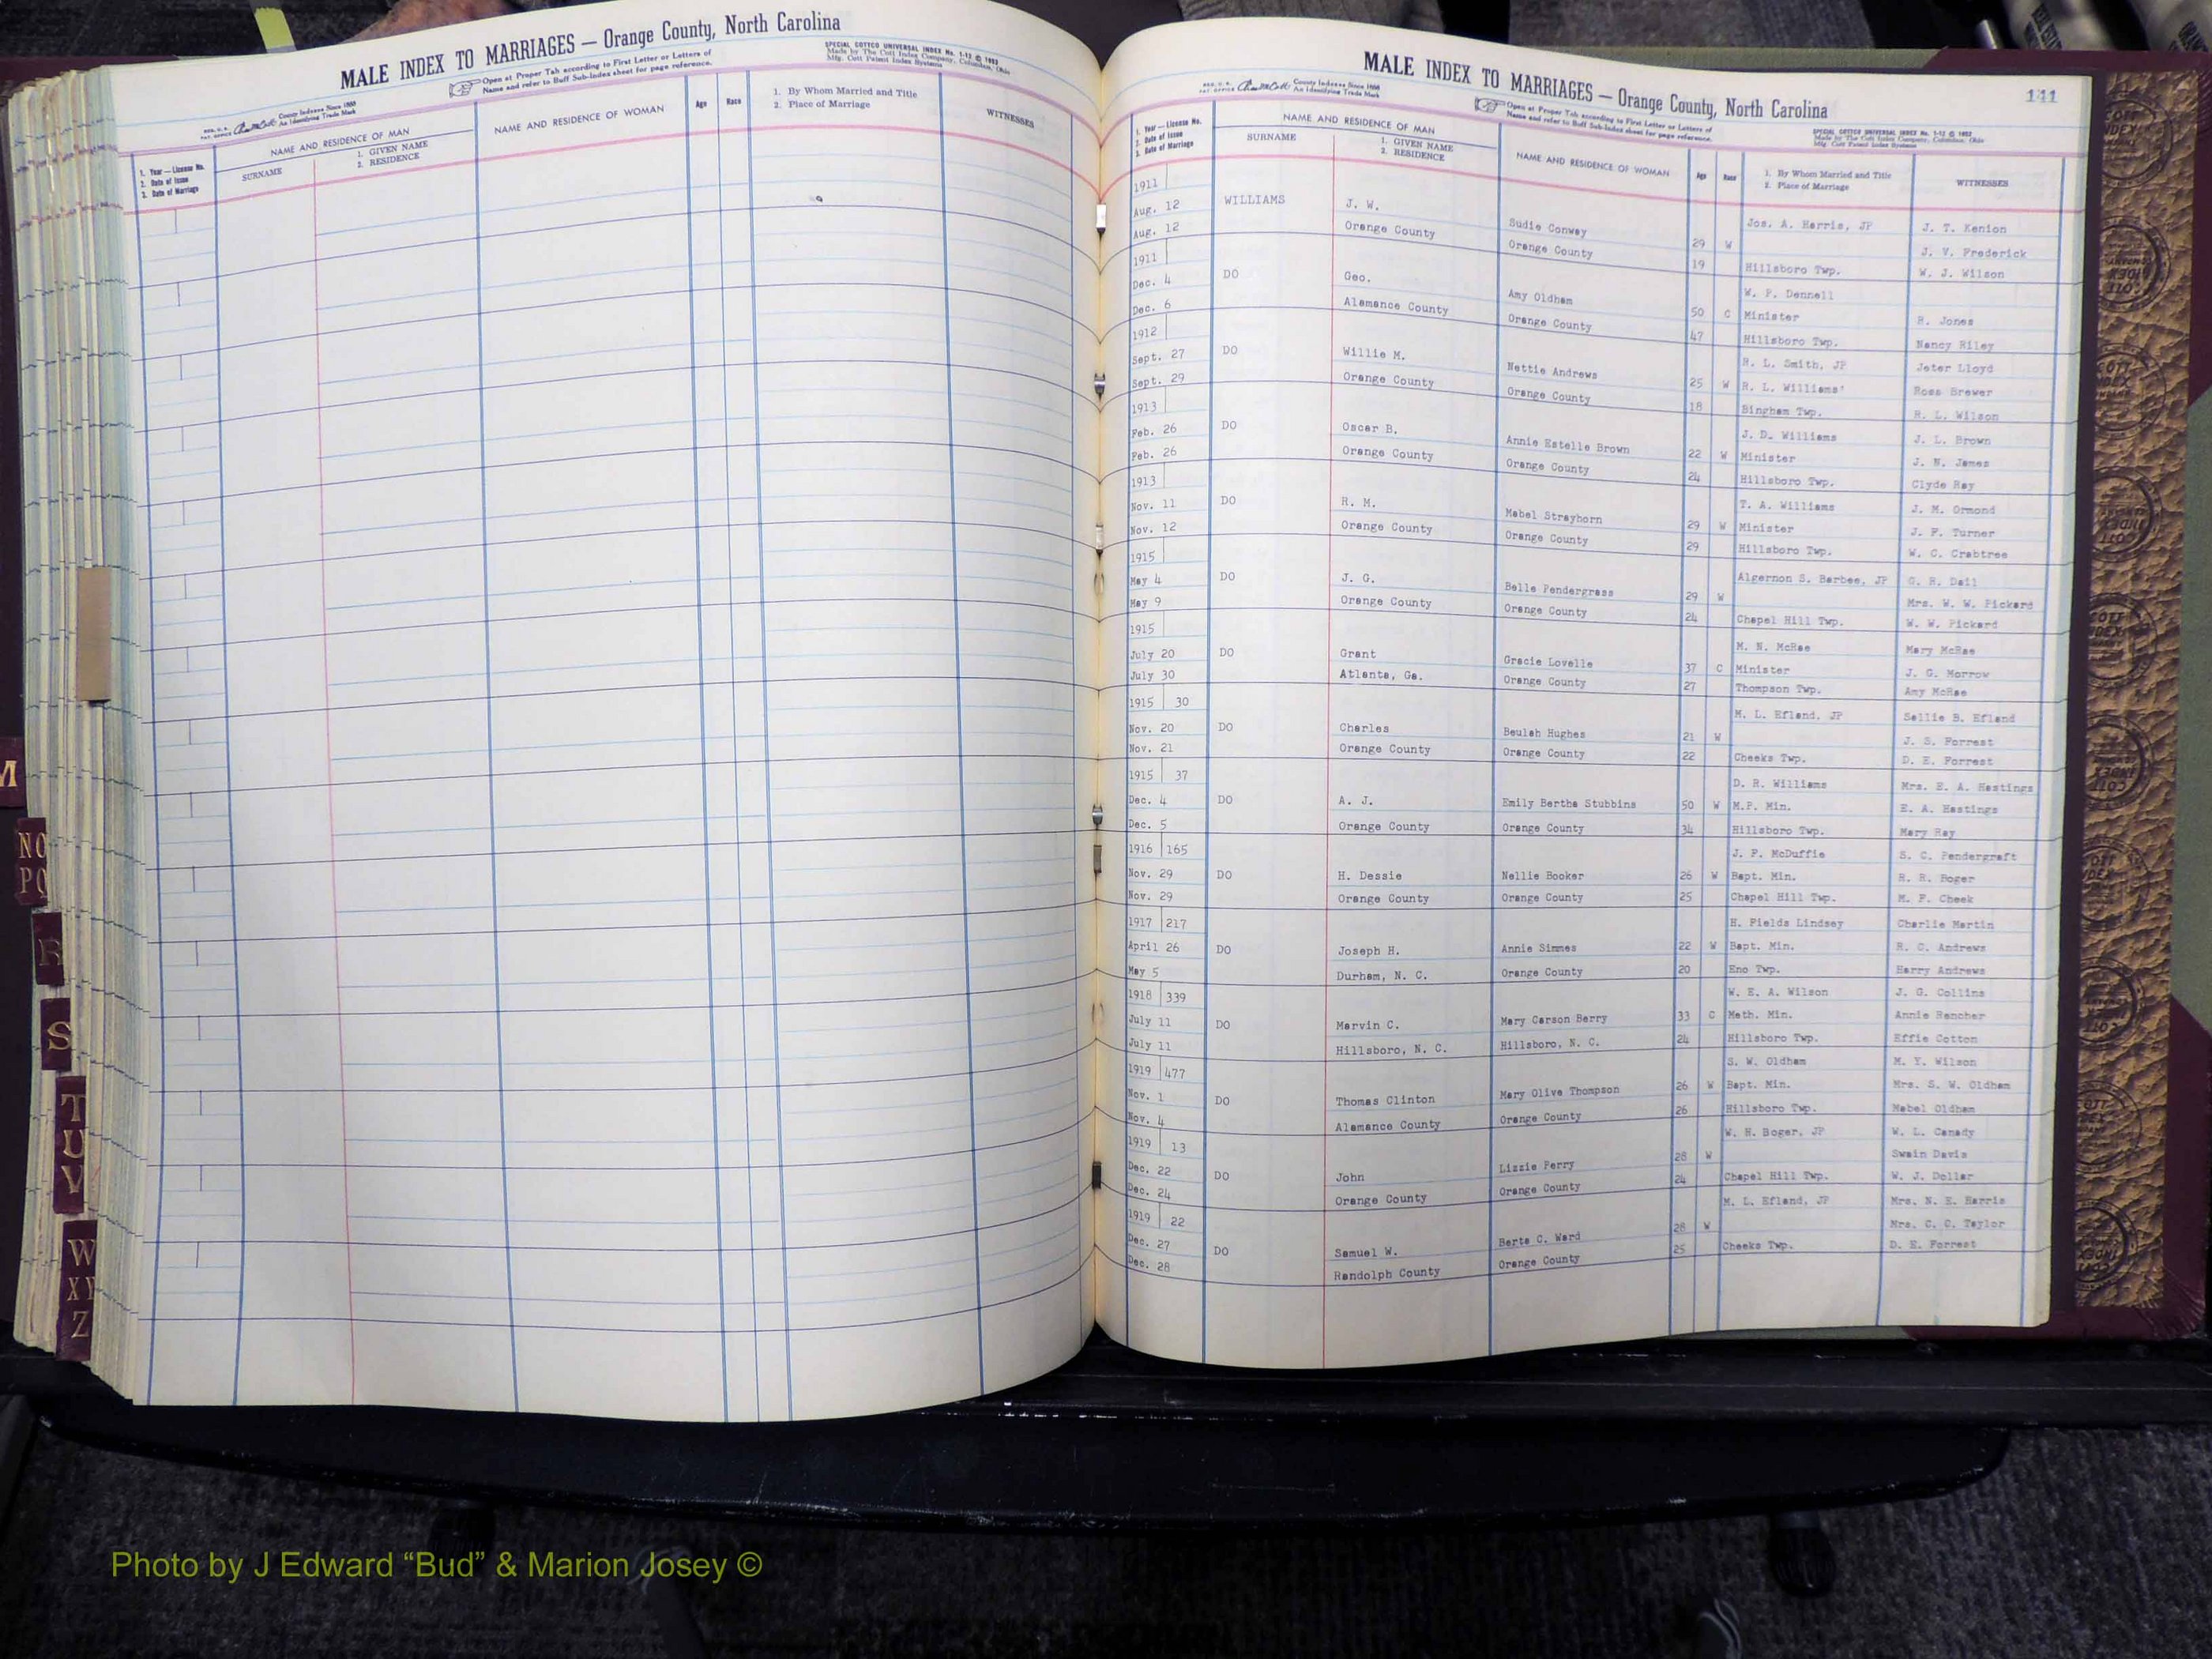 MALE INDEX TO MARRIAGES — Orange County, North Carolina
Open at Proper Tab according to First Letter or Letters of
Name and refer to Buff Sub-Index sheet for page reference.
SPECIAL COTTCO UNIVERSAL INDEX No. 1-12 © 1952
Made by The Cott Index Company, Columbus, Ohio
Mfg. Cott Patent Index Systems
County Indexes Since 1888
An Identifying Trade Mark
1. Year — License No.
2. Date of Issue
3. Date of Marriage
NAME AND RESIDENCE OF MAN
SURNAME
1. GIVEN NAME
2. RESIDENCE
NAME AND RESIDENCE OF WOMAN
Age
Race
1. By Whom Married and Title
2. Place of Marriage
WITNESSES
M
NO
PQ
R
S
T
U
V
W
XY
Z
MALE INDEX TO MARRIAGES — Orange County, North Carolina
141
County Indexes Since 1888
An Identifying Trade Mark
Open at Proper Tab according to First Letter or Letters of
Name and refer to Buff Sub-Index sheet for page reference.
SPECIAL COTTCO UNIVERSAL INDEX No. 1-12 © 1952
Made by The Cott Index Company, Columbus, Ohio
Mfg. Cott Patent Index Systems
1. Year — License No.
2. Date of Issue
3. Date of Marriage
NAME AND RESIDENCE OF MAN
SURNAME
1. GIVEN NAME
2. RESIDENCE
NAME AND RESIDENCE OF WOMAN
Age
Race
1. By Whom Married and Title
2. Place of Marriage
WITNESSES
1911 Jos. A. Harris, JP J. T. Kenion
Aug. 12 WILLIAMS J. W. Sudie Conway 29 W J. V. Frederick
Aug. 12 Orange County Orange County 19 Hillsboro Twp. W. J. Wilson
1911 W. P. Dennell
Dec. 4 DO Geo. Amy Oldham 50 C Minister R. Jones
Dec. 6 Alamance County Orange County 47 Hillsboro Twp. Nancy Riley
1912 R. L. Smith, JP Jeter Lloyd
Sept. 27 DO Willie M. Nettie Andrews 25 W R. L. Williams' Ross Brewer
Sept. 29 Orange County Orange County 18 Bingham Twp. R. L. Wilson
1913 J. D. Williams J. L. Brown
Feb. 26 DO Oscar B. Annie Estelle Brown 22 W Minister J. N. James
Feb. 26 Orange County Orange County 24 Hillsboro Twp. Clyde Ray
1913 T. A. Williams J. M. Ormond
Nov. 11 DO R. M. Mabel Strayhorn 29 W Minister J. F. Turner
Nov. 12 Orange County Orange County 29 Hillsboro Twp. W. C. Crabtree
1915 Algernon S. Barbee, JP G. R. Dail
May 4 DO J. G. Belle Pendergrass 29 W Mrs. W. W. Pickard
May 9 Orange County Orange County 24 Chapel Hill Twp. W. W. Pickard
1915 M. N. McRae Mary McRae
July 20 DO Grant Gracie Lovelle 37 C Minister J. G. Morrow
July 30 Atlanta, Ga. Orange County 27 Thompson Twp. Amy McRae
1915 30 M. L. Efland, JP Sallie B. Efland
Nov. 20 DO Charles Beulah Hughes 21 W J. S. Forrest
Nov. 21 Orange County Orange County 22 Cheeks Twp. D. E. Forrest
1915 37 D. R. Williams Mrs. E. A. Hastings
Dec. 4 DO A. J. Emily Bertha Stubbins 50 W M.P. Min. E. A. Hastings
Dec. 5 Orange County Orange County 34 Hillsboro Twp. Mary Ray
1916 165 J. F. McDuffie S. C. Pendergraft
Nov. 29 DO H. Dessie Nellie Booker 26 W Bapt. Min. R. R. Boger
Nov. 29 Orange County Orange County 25 Chapel Hill Twp. M. F. Cheek
1917 217 H. Fields Lindsey Charlie Martin
April 26 DO Joseph H. Annie Simmes 22 W Bapt. Min. R. C. Andrews
May 5 Durham, N. C. Orange County 20 Eno Twp. Harry Andrews
1918 339 W. E. A. Wilson J. G. Collins
July 11 DO Marvin C. Mary Carson Berry 33 C Meth. Min. Annie Rencher
July 11 Hillsboro, N. C. Hillsboro, N. C. 24 Hillsboro Twp. Effie Cotton
1919 477 S. W. Oldham M. Y. Wilson
Nov. 1 DO Thomas Clinton Mary Olive Thompson 26 W Bapt. Min. Mrs. S. W. Oldham
Nov. 4 Alamance County Orange County 26 Hillsboro Twp. Mabel Oldham
1919 13 W. H. Boger, JP W. L. Canady
Dec. 22 DO John Lizzie Perry 28 W Swain Davis
Dec. 24 Orange County Orange County 24 Chapel Hill Twp. W. J. Dollar
1919 22 M. L. Efland, JP Mrs. N. E. Harris
Dec. 27 DO Samuel W. Berta C. Ward 28 W Mrs. C. C. Taylor
Dec. 28 Randolph County Orange County 25 Cheeks Twp. D. E. Forrest
Photo by J Edward “Bud” & Marion Josey ©